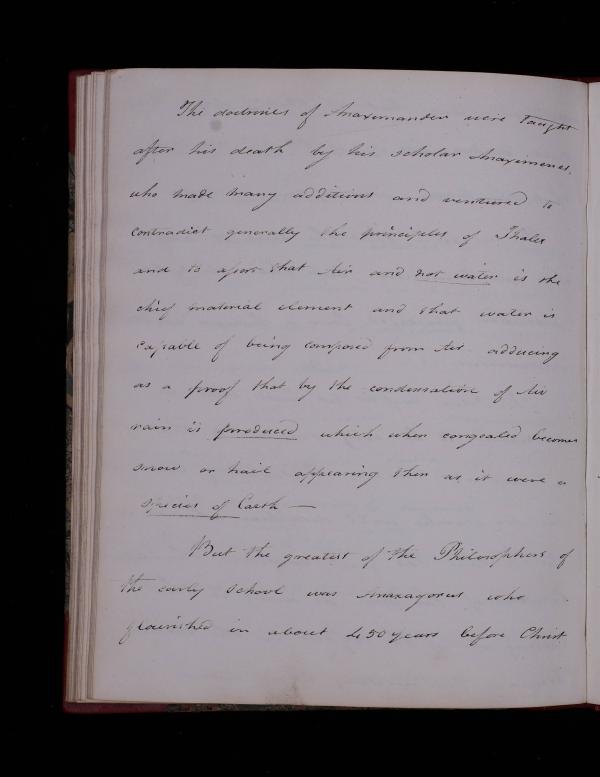 The doctrines of Anaximander were taught
after his death by his scholar Anaximenes,
who made many additions and ventured to
contradict generally the principles of Thales
and to assert that Air and not water is the
chief material element and that water is
capable of being composed from Air adducing
as a proof that by the condensation of Air
rain is produced which when congealed becomes
snow or hail appearing then as it were a
species of Earth —
But the greatest of the Philosophers of
the early school was Anaxagorus who
flourished in about 450 years before Christ